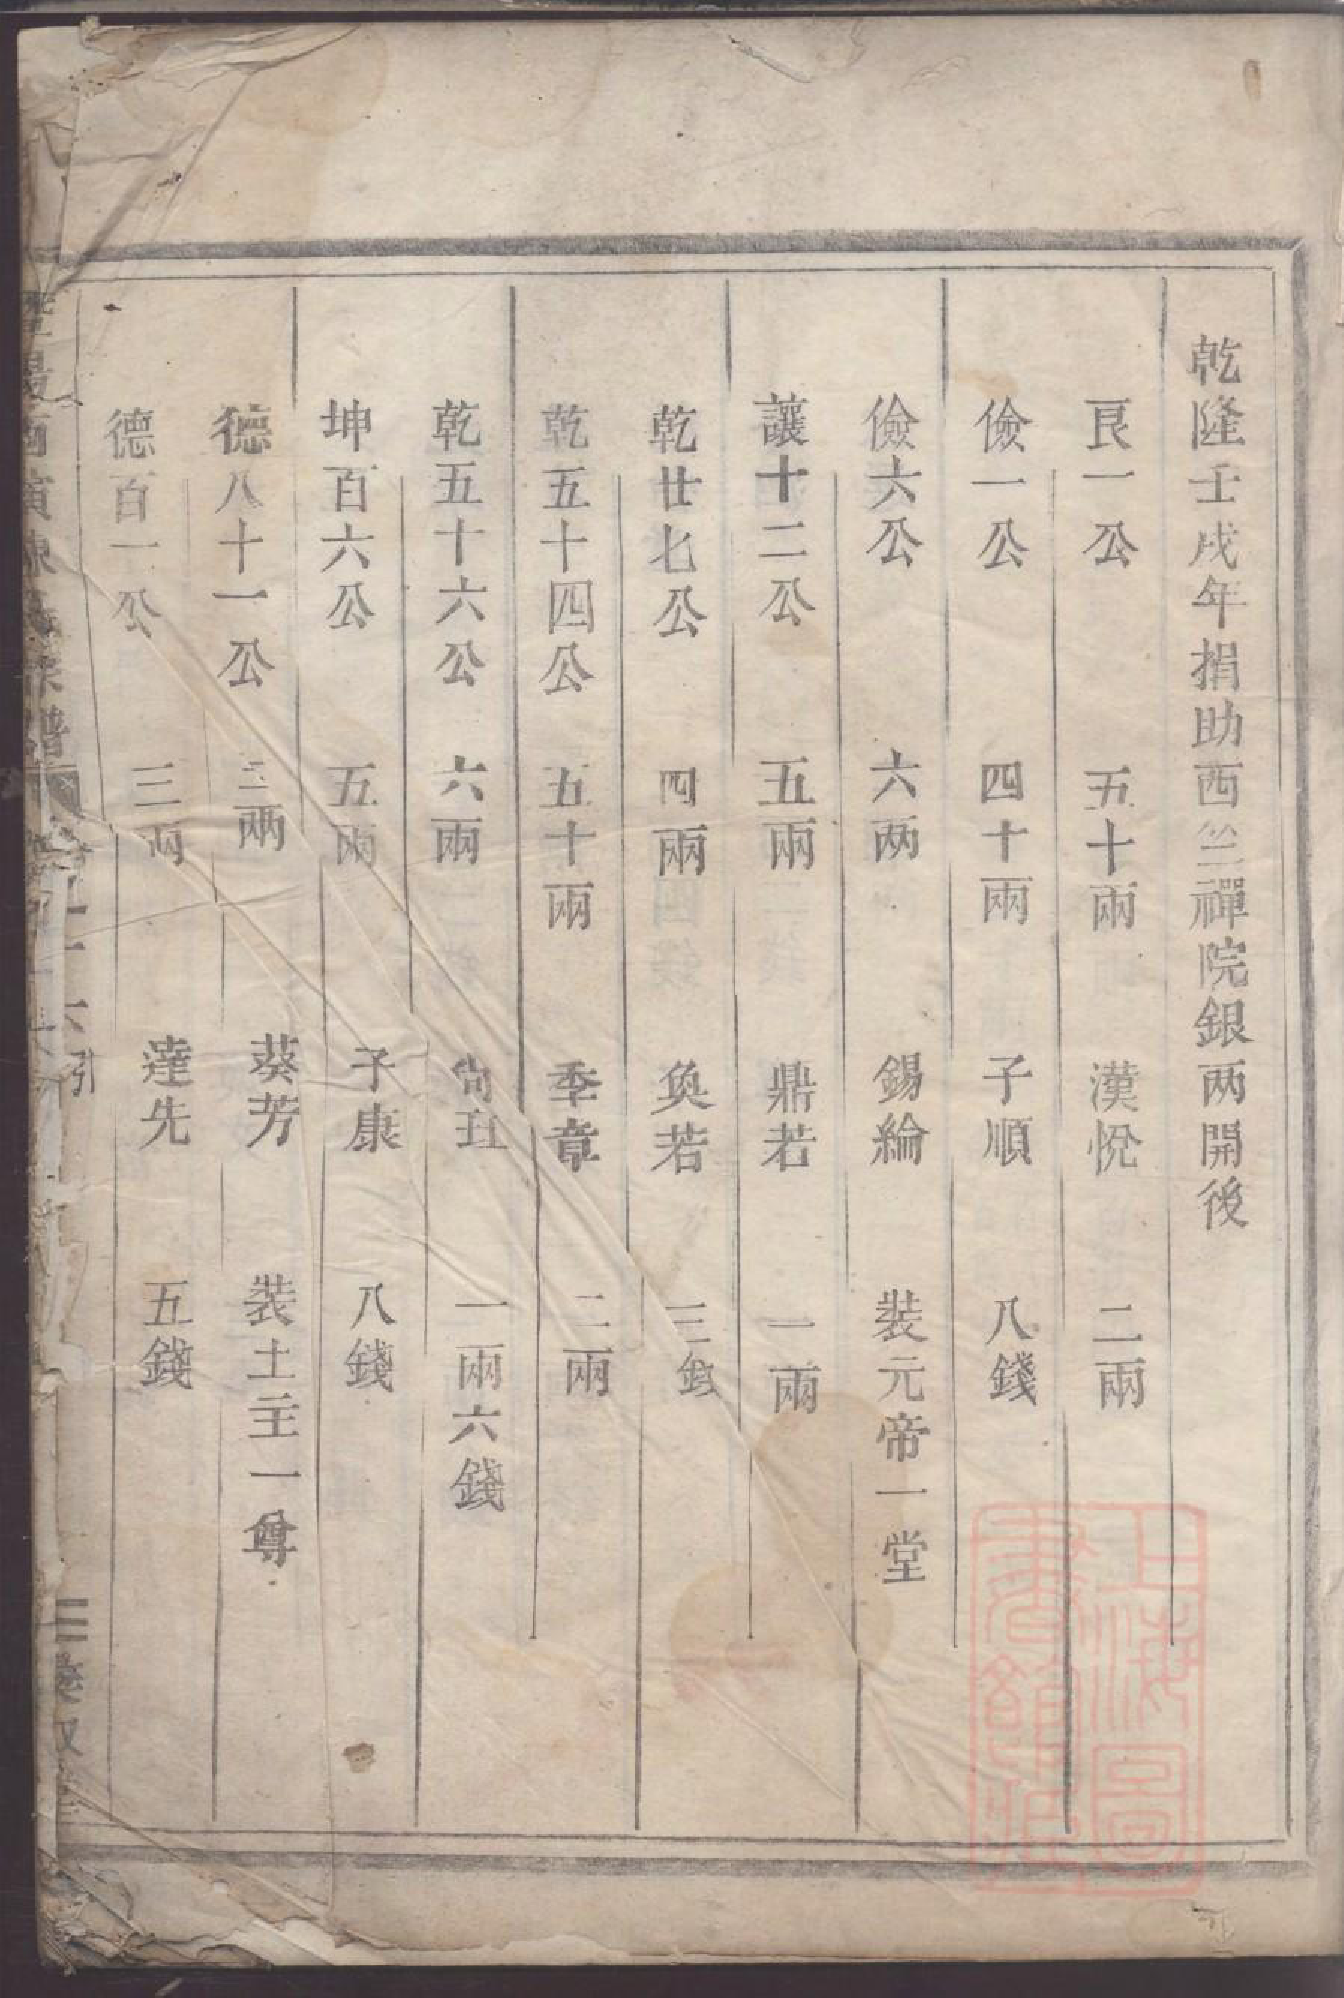 乾隆壬戌年捐助西竺禪院銀两開後
艮一公 五十兩 漢悅 二兩
儉一公 四十兩 子順 八錢
儉六公 六两 錫綸 裝元帝一堂
讓十二公 五兩 鼎若 一兩
乾廿七公 四兩 奐若 三錢
乾五十四公 五十兩 季章 二兩
乾五十六公 六兩 旬丑 一兩六錢
坤百六公 五兩 子康 八錢
德八十一公 三兩 葵芳 裝土主一尊
德百一公 三兩 達先 五錢
上海圖書館藏